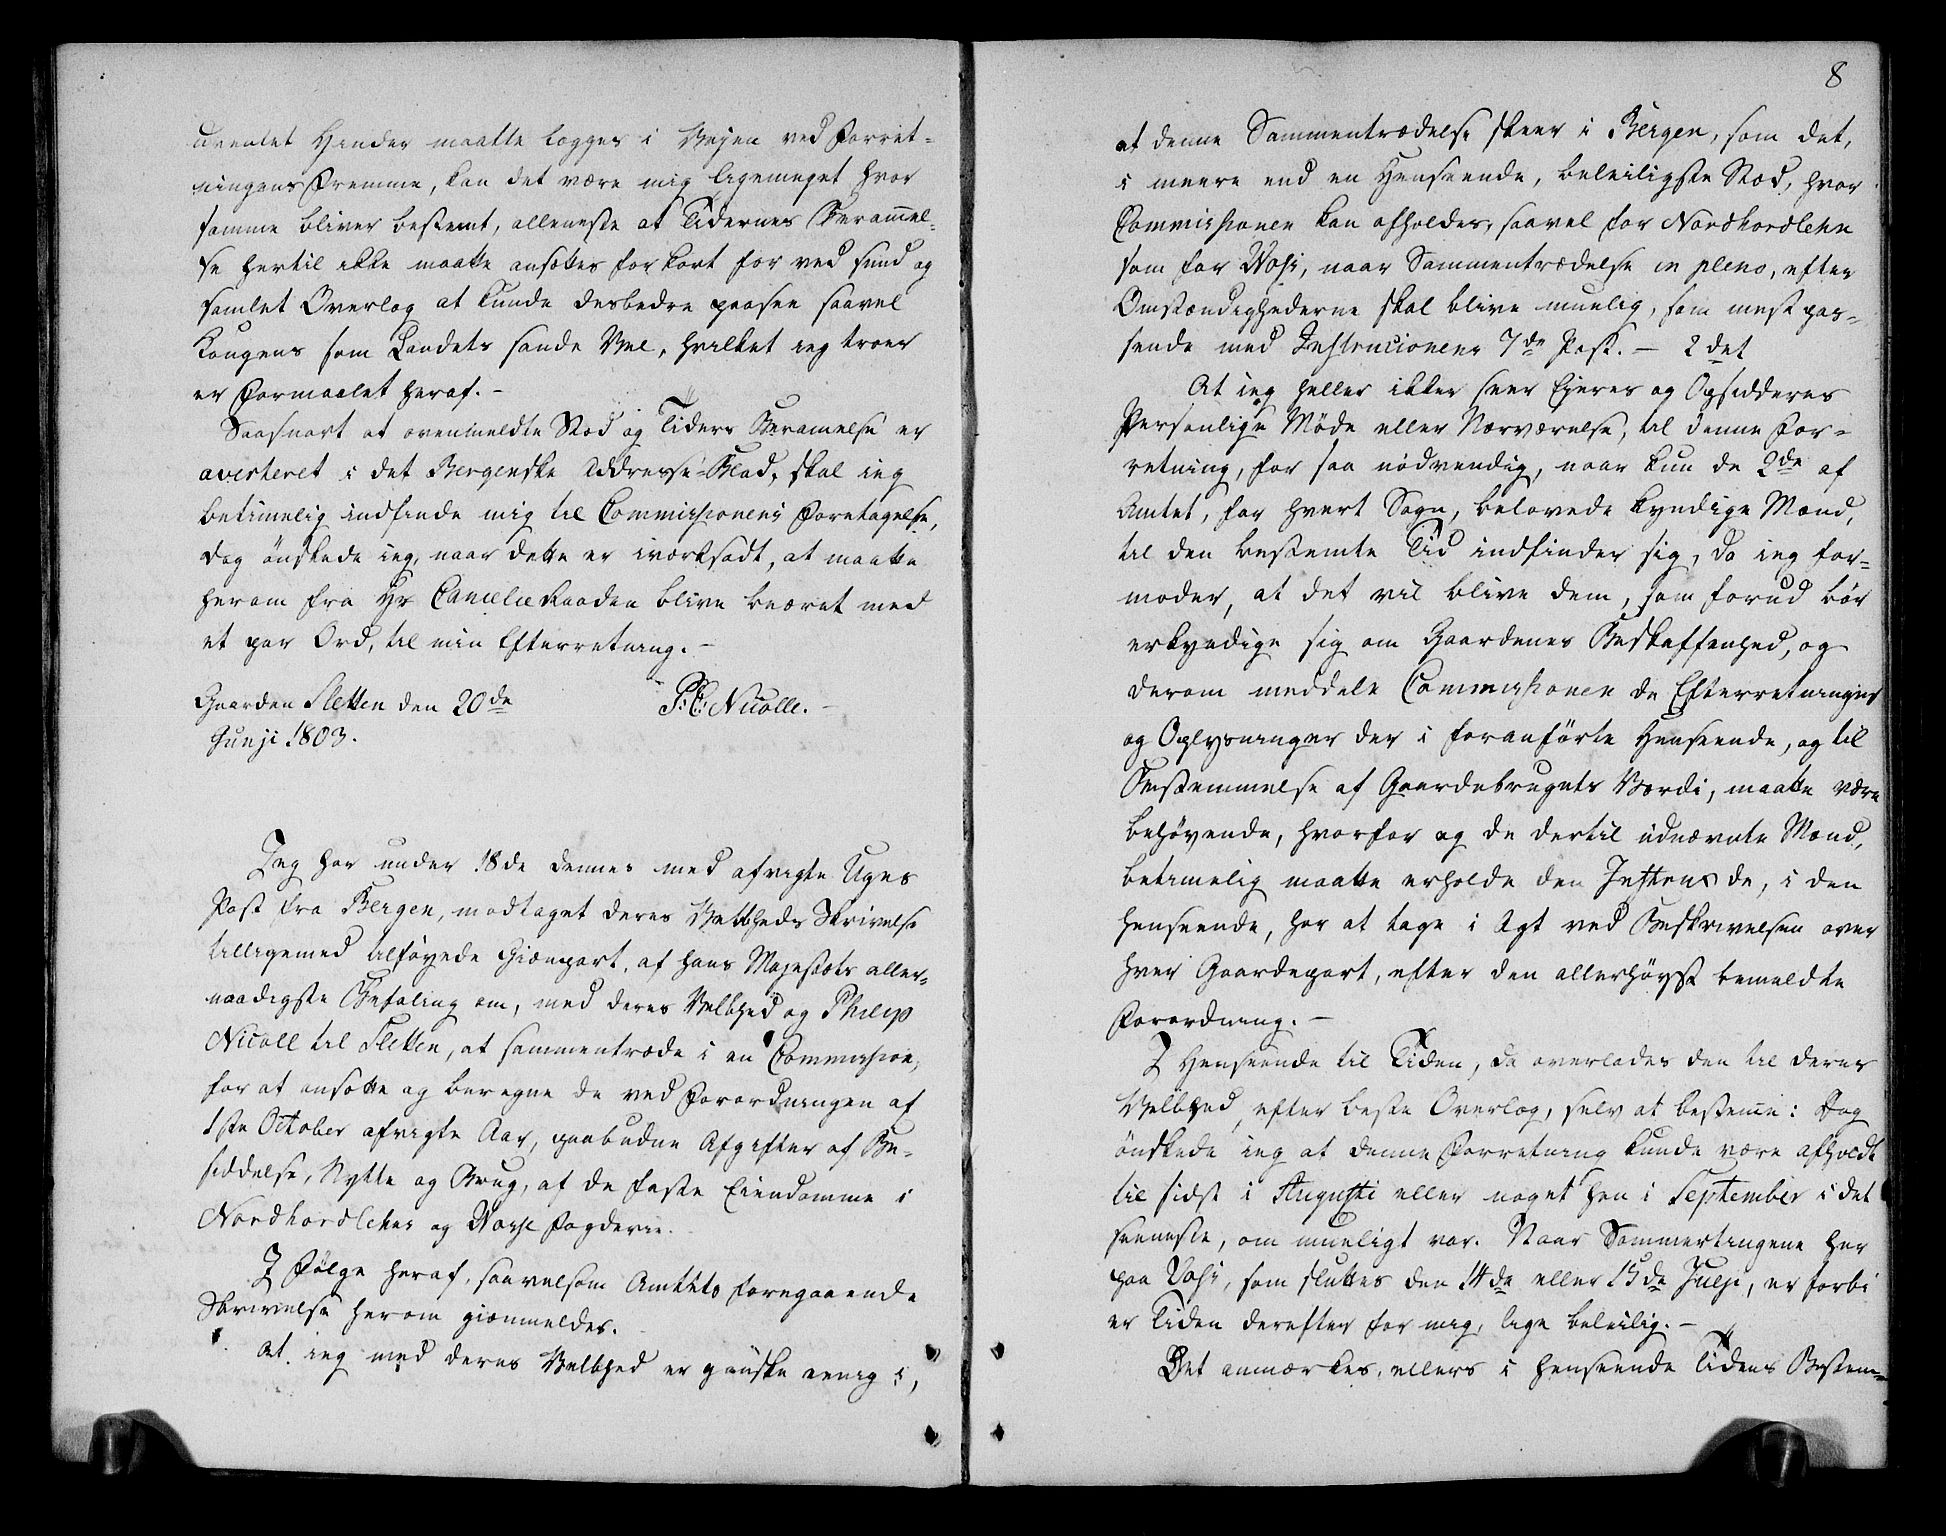 uventet Hinder maatte legges i Vejen ved Forret-
ningens Fremme, kan det være mig ligemeget hvor
samme bliver bestemt, alleneste at Tidernes Beram̅el-
se hertil ikke maatte ansættes for kort for ved sund og
samlet Overlæg at kunde desbedre paasee saavel
Kongens som Landets sande Vel, hvilket ieg troer
er Formaalet heraf. -
Saasnart at ovenmeldte Stæd og Tiders Beramelse er
averteret i det Bergenske Addresse-Blad, skal ieg
betimelig indfinde mig til Commissionens Foretagelse,
dog ønskede ieg, naar dette er iværksadt, at maatte
herom fra Hr Cancelieraaden blive beæret med
et par Ord, til min Efterretning. -
Gaarden Sletten den 20de P: C: Nicolle. -
Junji 1803.
Jeg har under 18de dennes med afvigte Uges
Post fra Bergen, modtaget deres Velbheds Skrivelse
tilligemed tilføyede Gienpart, af hans Majestæts aller-
naadigste Befaling om, med deres Velbhed og Philip
Nicoll til Sletten, at sammentræde i en Commission,
for at ansætte og beregne de ved Forordningen af
1ste October afvigte Aar, paabudne Afgifter af Be-
siddelse, Nytte og Brug, af de faste Eiendomme i
Nordhordlehns og Vosse Fogderie.
I Følge heraf, saavelsom Amtets foregaaende
Skrivelse herom gienmeldes.
1. At ieg med deres Velbhed er ganske eenig i,
8
at denne Sammentrædelse skeer i Bergen, som det,
i meere end en Henseende, beleiligste Stæd, hvor
Commissionen kan afholdes, saavel for Nordhordlehn
som for Voss, naar Sammentrædelse in pleno, efter
Omstændighederne skal blive muelig, som mest pas-
sende med Instructionens 7de Post. - 2det
At ieg heller ikke seer Ejeres og Opsidderes
Personlige Møde eller Nærværelse, til denne For-
retning, for saa nødvendig, naar kun de 2de af
Amtet, for hvert Sogn, belovede kyndige Mænd,
til den bestemte Tid indfinder sig, da ieg for-
moder, at det vil blive dem, som forud bør
erkyndige sig om Gaardenes Beskaffenhed, og
derom meddele Commissionen de Efterretninger
og Oplysninger der i foranførte Henseende, og til
Bestemmelse af Gaardebrugets Værdi, maatte være
behøvende, hvorfor og de dertil udnævnte Mænd,
betimelig maatte erholde den Instrux de, i den
henseende, har at tage i Agt ved Beskrivelsen over
hver Gaardepart, efter den allerhøyst bemeldte
Forordning. -
I Henseende til Tiden, da overlades den til deres
Velbhed, efter beste Overlæg, selv at bestemme: Dog
ønskede ieg at denne Forretning kunde være afholdt
til sidst i Augusti eller noget hen i September i det
seeneste, om mueligt var. Naar Sommertingene her
paa Voss, som sluttes den 14de eller 15de Julji, er forbi
er Tiden derefter for mig, lige beleilig. -
Det anmærkes, ellers i henseende Tidens Bestem-